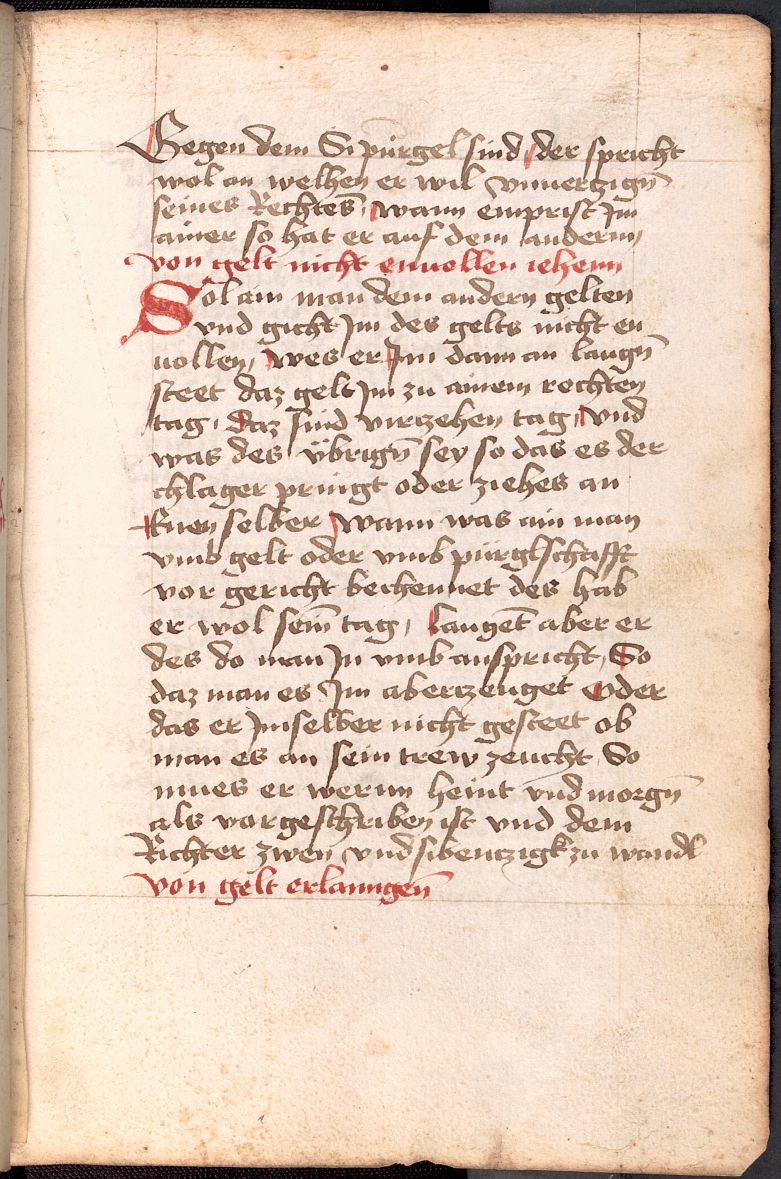 Gegen dem Si pürgel sind, der spricht
wol an welhen er wil vnuerczigñ
seines Rechtes, wann emprist Im
ainer so hat er auf dem andernn
von gelt nicht enuollen iehenn
Sol ain man dem andern gelten
vnd gicht Im des gelts nicht en
uollen, wes er Im dann an laugñ
steet daz gelt Im zu ainem rechten
tag, daz sind virczehen tag, vnd
was des übrigñ sey so das es der
chlager pringt oder ziehes an
Ruen selber wann was ain man
vmb gelt oder vmb pürglschafft
vor gericht bechennet des hab
er wol sein̄ tag, laugēt aber er
des do man In vmb anspricht, So
daz man es Im aberczeuget Oder
das er Im selber nicht gesteet ob
man es an sein trew zeucht, So
mues er wernn heint vnd morgñ
als vorgeschriben ist vnd dem
Richter zwen vnd sibenczigk zu wandl
von gelt erlaungen̄